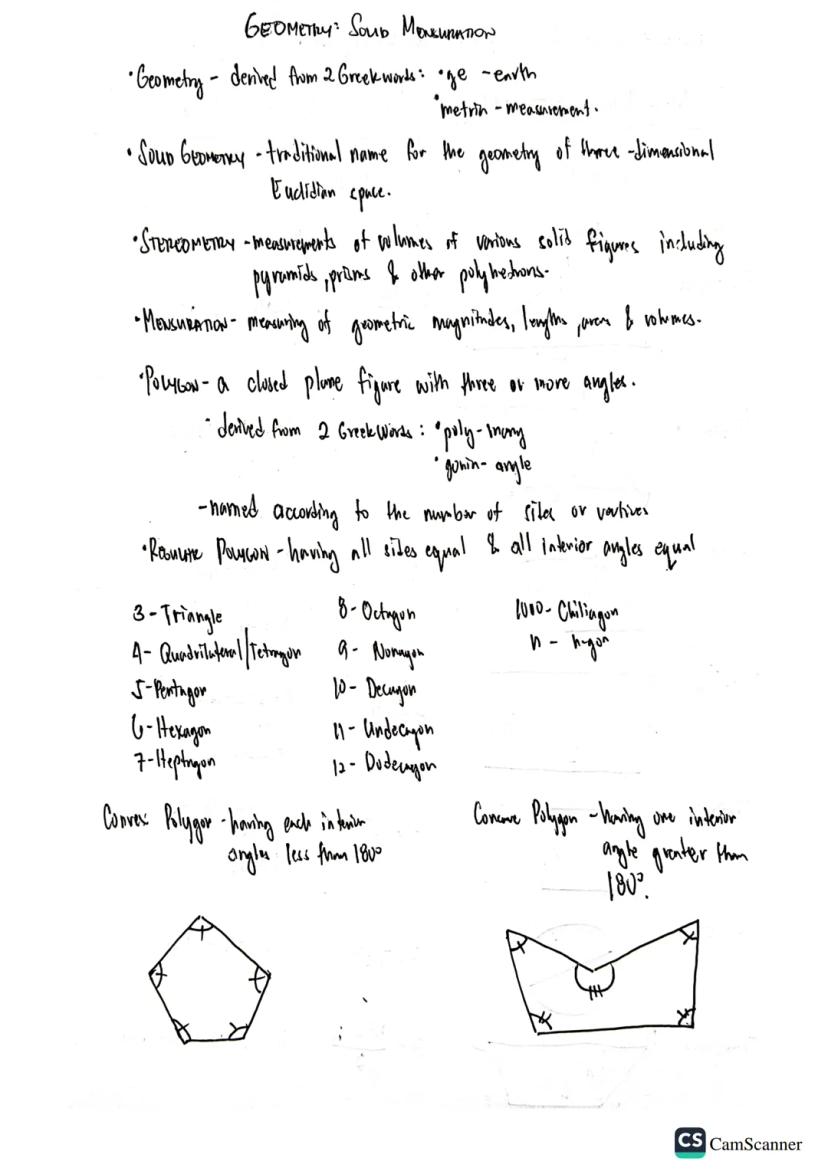 GEOMETRY: SOLID MENSURATION
• Geometry - derived from 2 Greek words: • ge - earth
• metrin - measurement.
• SOLID GEOMETRY - traditional name for the geometry of three-dimensional
Euclidian space.
• STEREOMETRY - measurements of volumes of various solid figures including
pyramids, prisms & other polyhedrons.
• MENSURATION - measuring of geometric magnitudes, lengths, areas & volumes.
• POLYGON - a closed plane figure with three or more angles.
• derived from 2 Greek Words: • poly - many
• gonin - angle
- named according to the number of sides or vertices
• REGULAR POLYGON - having all sides equal & all interior angles equal
3 - Triangle
4 - Quadrilateral/Tetragon
5 - Pentagon
6 - Hexagon
7 - Heptagon
8 - Octagon
9 - Nonagon
10 - Decagon
11 - Undecagon
12 - Dodecagon
1000 - Chiliagon
n - n-gon
Convex Polygon - having each interior
angles less than 180°
Concave Polygon - having one interior
angle greater than
180°.
CS CamScanner